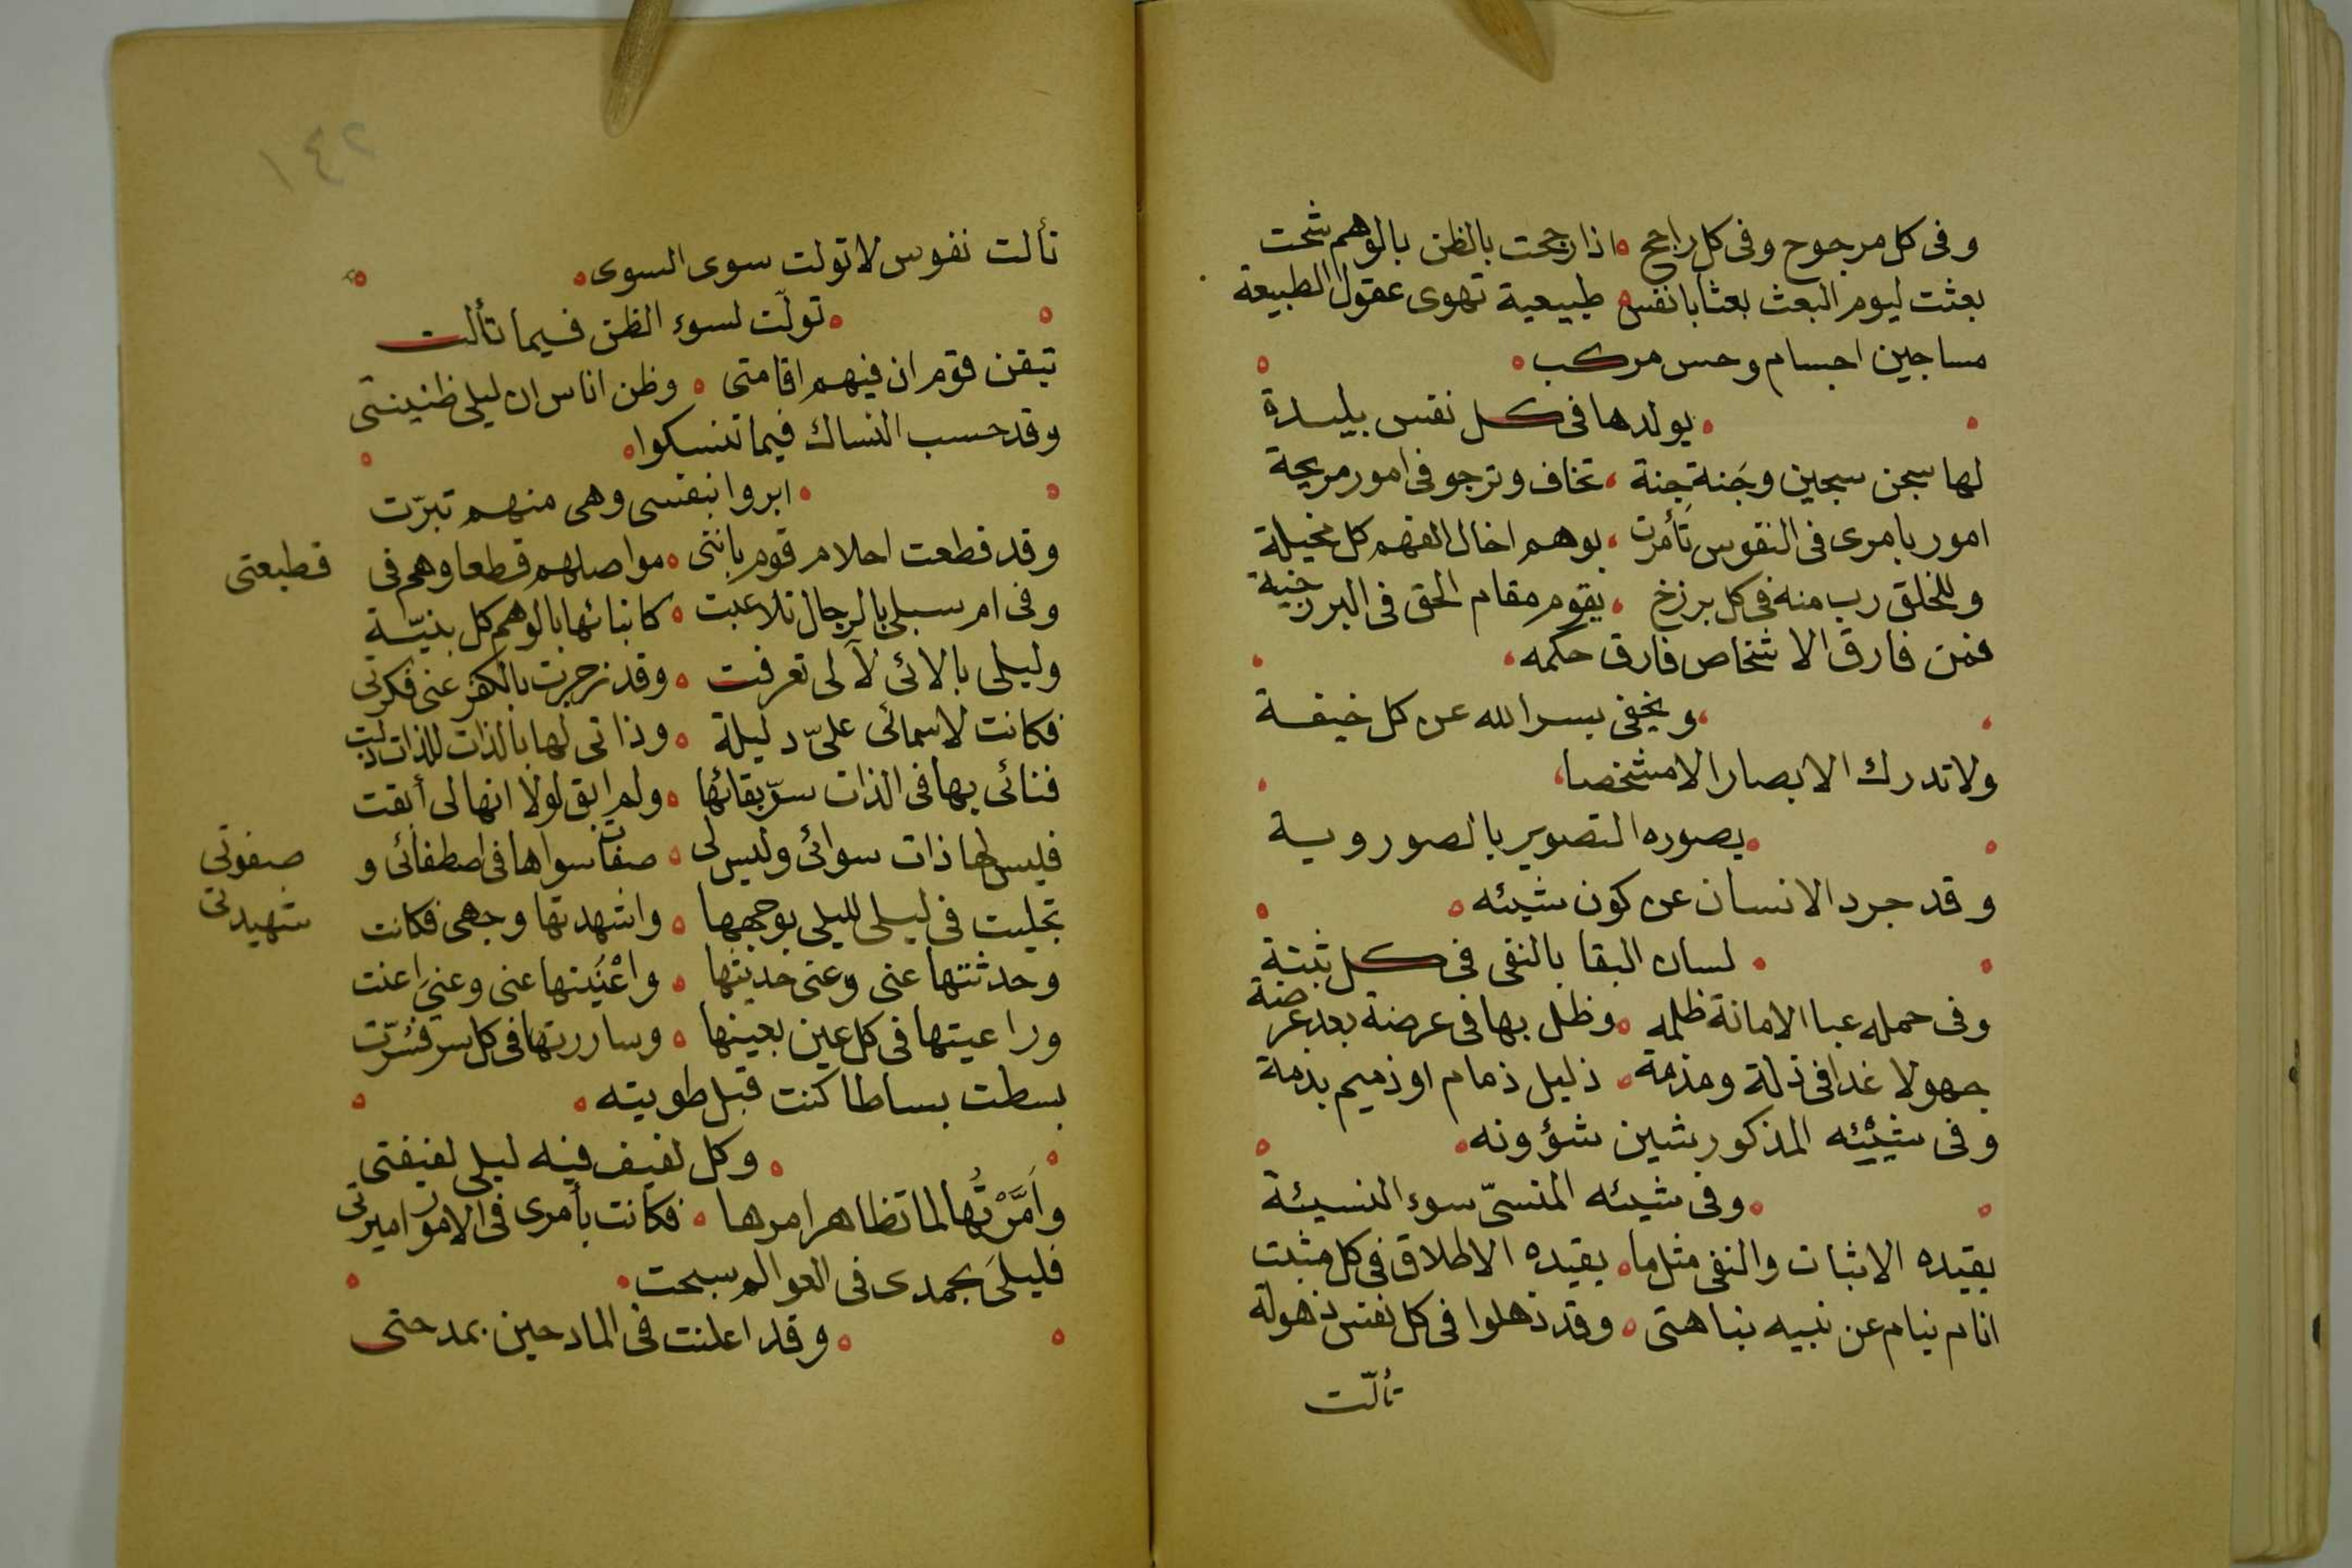 وفى كل مرجوح وفى كل راجح اذا رجحت بالظن بالوهم شحت
بعثت ليوم البعث بعثا بانفس طبيعية تهوى عقول الطبيعة
مساجين اجسام وحس مركب
يولدها فى كل نفس بليدة
لها سجن سجين وجَنة جنة تخاف وترجو فى امور مريحة
امور بامرى فى النفوس تَأمرت بوهم اخال الفهم كل مخيلة
وللخلق رب منه فى كل برزخ يقوم مقام الحق فى البرزخية
فمن فارق الاشخاص فارق حكمه
ويخفى بسر الله عن كل خيفة
ولا تدرك الابصار الا مشخصا
يصوره التصوير بالصوروية
وقد جرد الانسان عن كون شيئه
لسان البقا بالنفى فى كل ثبتة
وفى حمله عبا الامانة ظلمه وظل بها فى عرضة بعد عرضة
جهولا غدا فى ذلة ومذمة ذليل ذمام او ذميم بذمة
وفى شيئيه المذكور بشين شؤونه
وفى شيئه المنسىّ سوء النسيئة
يقيده الاثبات والنفى مثل ما يقيده الاطلاق فى كل مثبت
انام نيام عن نبيه نباهتى وقد ذهلوا فى كل نفس ذهولة
تألّت
١٤٢
تألت نفوس لا تولت سوى السوى
تولّت لسوء الظن فيما تألت
تيقن قوم ان فيهم اقامتى وظن اناس ان ليلى ظنينتى
وقد حسب النساك فيما تنسكوا
ابروا بنفسى وهى منهم تبرّت
وقد قطعت احلام قوم باننى مواصلهم قطعا وهم فى قطيعتى
وفى امر سبلى بالرجال تلاعبت كابنائها بالوهم كل بنيّة
وليلى بالائى لآلى تعرفت وقد زجرت بالكفر عنى فكرتى
فكانت لاسمائى علىّ دليلة وذاتى لها بالذات للذات دلت
فنائى بها فى الذات سرّ بقائها ولم ابق لولا انها لى أبقت
فليس لها ذات سوائى وليس لى صفات سواها فى اصطفائى وصفوتى
تجليت فى ليلى لليلى بوجهها واشهدتها وجهى فكانت شهيدتى
وحدثتها عنى وعنى حديثها واعْنَيتها عنى وعنىَ اعنت
وراعيتها فى كل عين بعينها وساررتها فى كل سر فسُرّت
بسطت بساطا كنت قبل طويته
وكل لفيف فيه ليلى لفيفتى
واَمَّرْتُها لما تظاهر امرها فكانت بأمرى فى الامور اميرتى
فليلىَ بحمدى فى العوالم سبحت
وقد اعلنت فى المادحين بمدحتى